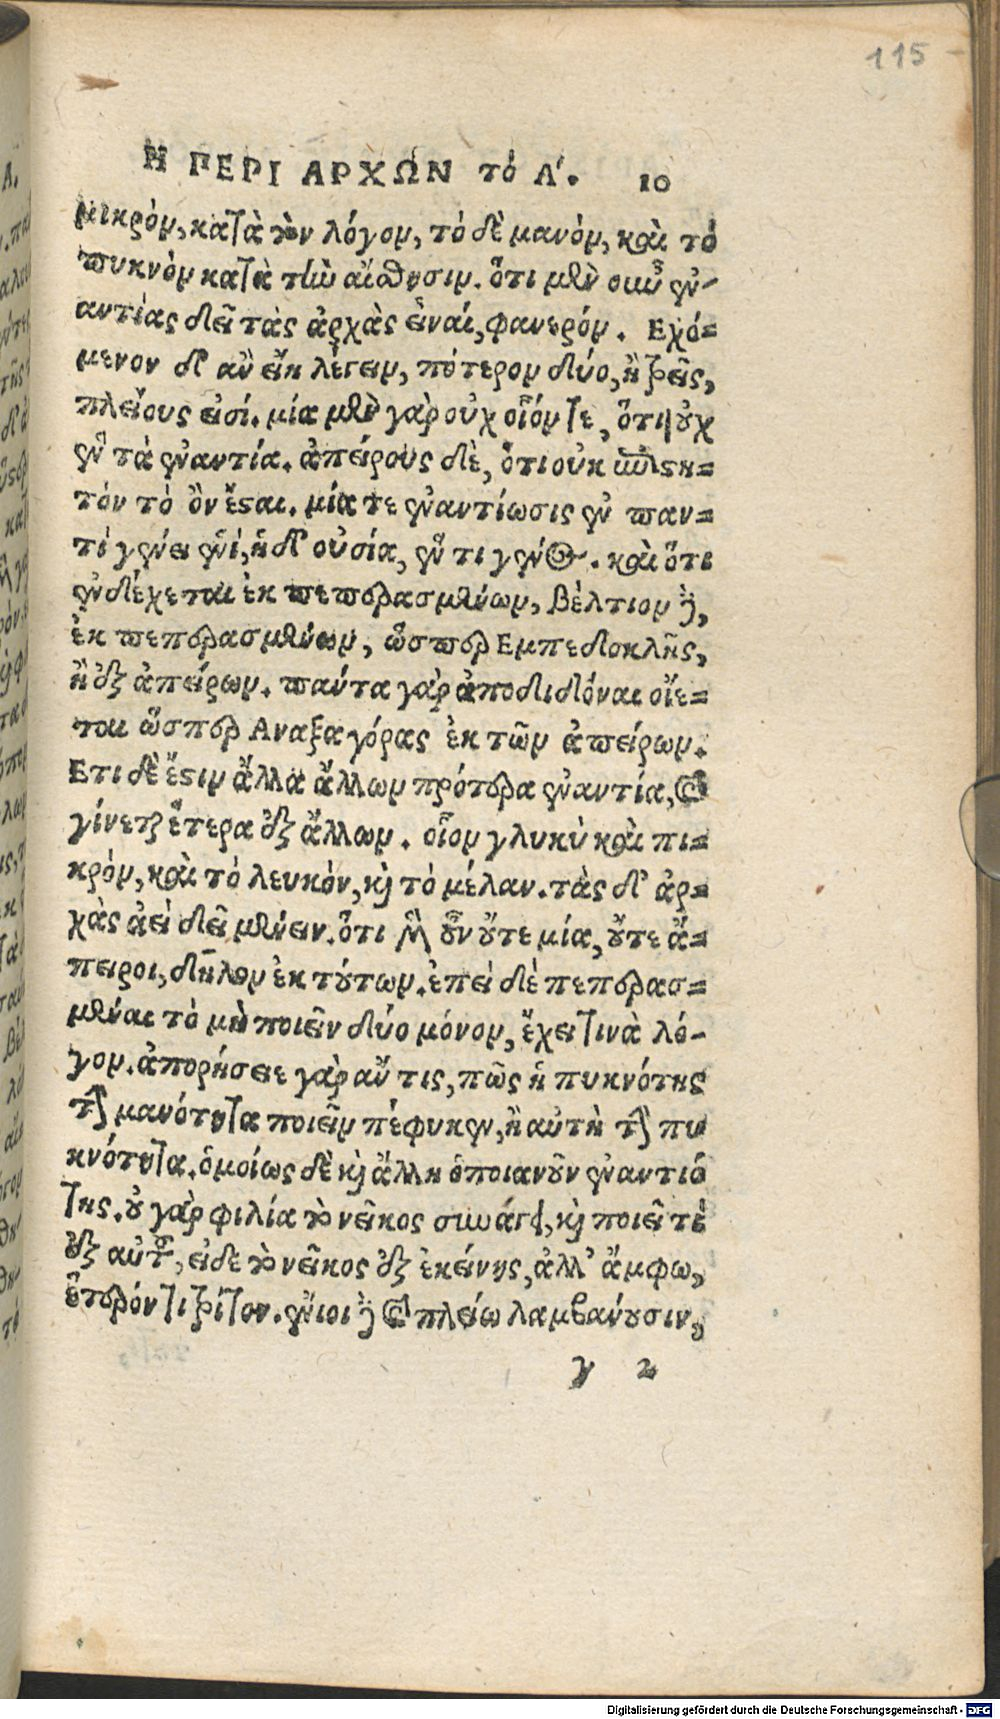 115
Η ΠΕΡΙ ΑΡΧΩΝ τὸ Α΄. 10
μικρὸν, κατὰ τὸν λόγον, τὸ δὲ μανὸν, καὶ τὸ
πυκνὸν κατὰ τὴν αἴσθησιν. ὅτι μὲν οὖν ἐν-
αντίας δεῖ τὰς ἀρχὰς εἶναι, φανερόν. Εχό=
μενον δ' ἂν εἴη λέγειν, πότερον δύο, ἢ τρεῖς,
πλείους εἰσί. μία μὲν γὰρ οὐχ οἷόν τε, ὅτι οὐχ
ἓν τὰ ἐναντία. ἀπείρους δὲ, ὅτι οὐκ ἐπιστη=
τὸν τὸ ὂν ἔσται. μία τε ἐναντίωσις ἐν παν=
τὶ γένει ἑνί, ἡ δ' οὐσία, ἕν τι γένος. καὶ ὅτι
ἐνδέχεται ἐκ πεπερασμένων, βέλτιον δὲ,
ἐκ πεπερασμένων, ὥσπερ Εμπεδοκλῆς,
ἢ ἐξ ἀπείρων. πάντα γὰρ ἀποδιδόναι οἴε=
ται ὥσπερ Αναξαγόρας ἐκ τῶν ἀπείρων.
Ετι δὲ ἔστιν ἄλλα ἄλλων πρότερα ἐναντία, καὶ
γίνεται ἕτερα ἐξ ἄλλων. οἷον γλυκὺ καὶ πι=
κρὸν, καὶ τὸ λευκὸν, καὶ τὸ μέλαν. τὰς δ' ἀρ=
χὰς ἀεὶ δεῖ μένειν. ὅτι μὲν οὖν οὔτε μία, οὔτε ἄ=
πειροι, δῆλον ἐκ τούτων. ἐπεὶ δὲ πεπερασ=
μέναι τὸ μὴ ποιεῖν δύο μόνον, ἔχει τινὰ λό-
γον. ἀπορήσειε γὰρ ἄν τις, πῶς ἡ πυκνότης
τὴν μανότητα ποιεῖν πέφυκεν, ἢ αὐτὴ τὴν πυ
κνότητα. ὁμοίως δὲ καὶ ἄλλη ὁποιανοῦν ἐναντιό
της. οὐ γὰρ φιλία τὸ νεῖκος συνάγει, καὶ ποιεῖ τὶ
ἐξ αὐτοῦ, οὐδὲ τὸ νεῖκος ἐξ ἐκείνης, ἀλλ' ἄμφω,
ἕτερόν τι τρίτον. ἔνιοι δὲ καὶ πλείω λαμβάνουσιν,
γ 2
Digitalisierung gefördert durch die Deutsche Forschungsgemeinschaft - DFG